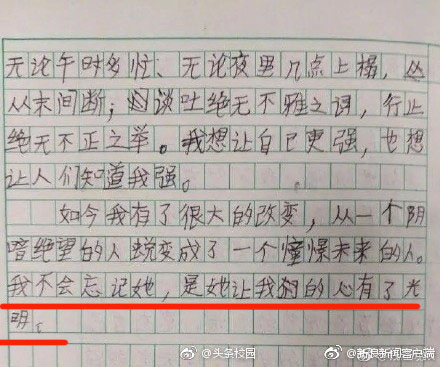 无论午时多忙、无论夜里几点上榻，丛
从未间断；谈吐绝无不雅之词，行止
绝无不正之举。我想让自己更强，也想
让人们知道我强。
如今我有了很大的改变，从一个阴
暗绝望的人蜕变成了一个憧憬未来的人。
我不会忘记她，是她让我的心有了光
明。
@头条校园
@新浪新闻客户端